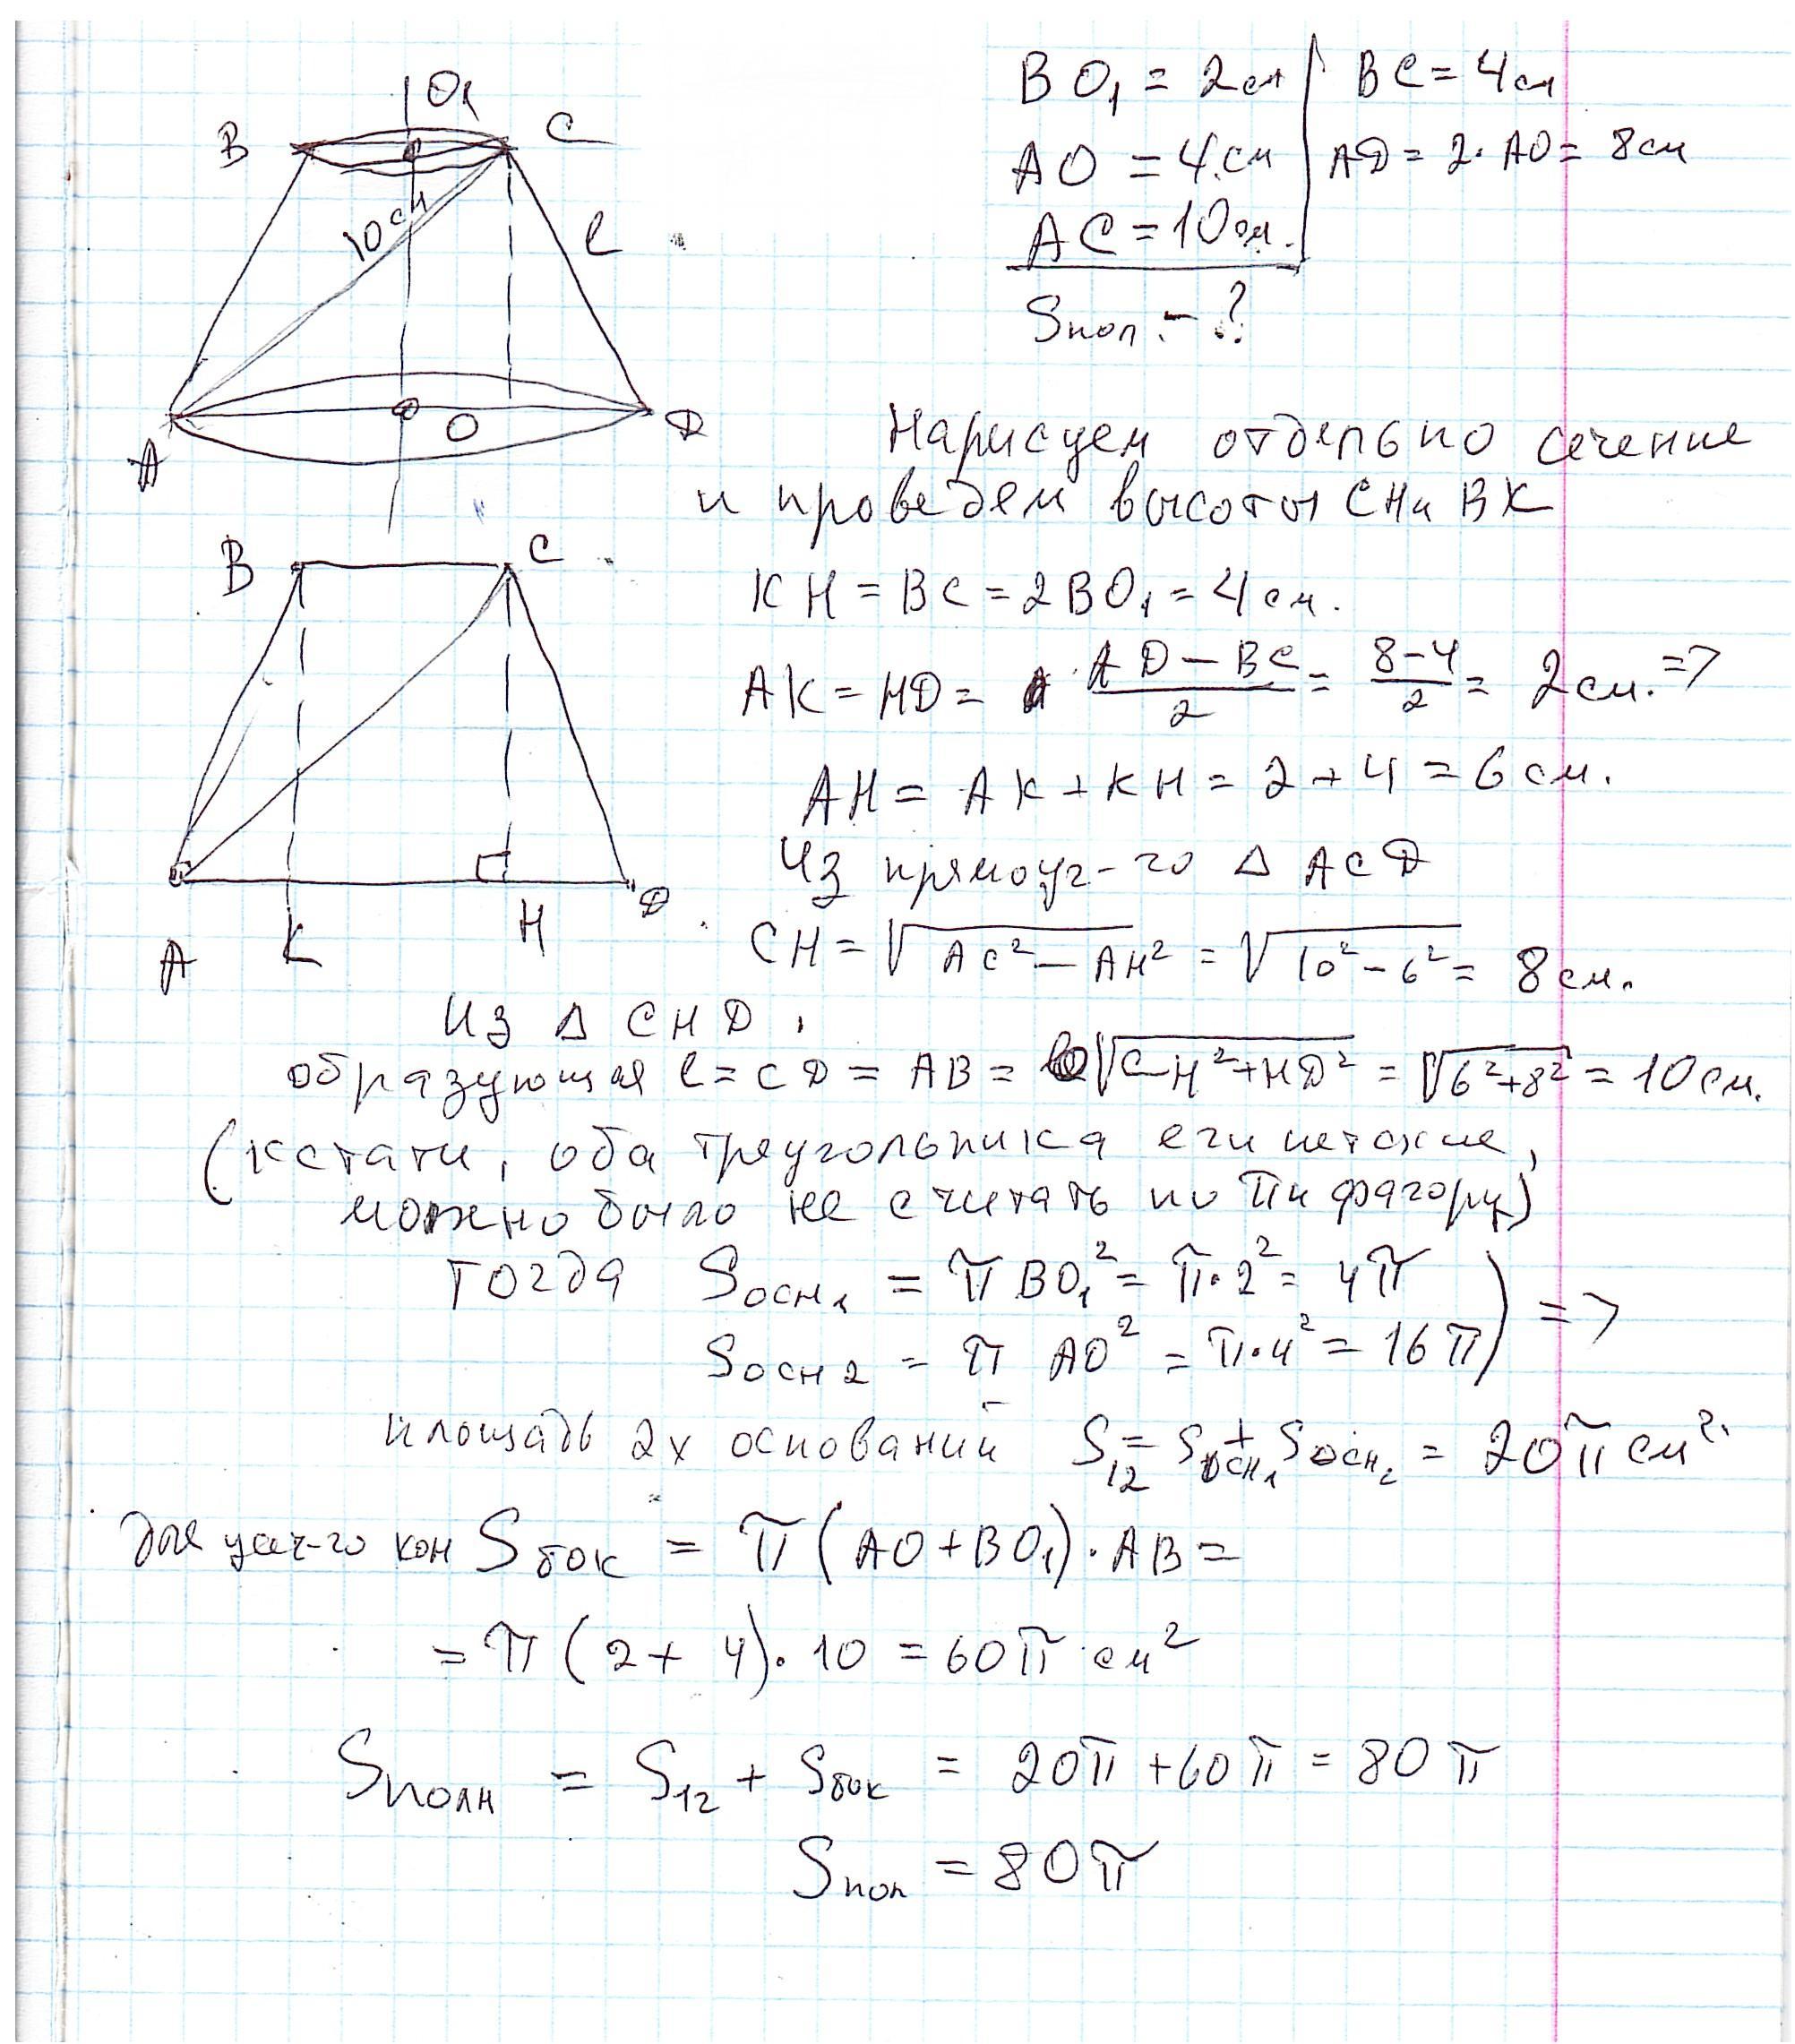 O₁
B
C
10см
l
A
O
D
BO₁ = 2см
AO = 4см
AC = 10см.
Sпол. - ?
BC = 4см
AD = 2·AO = 8см
Нарисуем отдельно сечение
и проведем высоты CH и BK
B
C
A
K
H
D
KH = BC = 2BO₁ = 4см.
AK = HD = (AD - BC)/2 = (8-4)/2 = 2см. =>
AH = AK + KH = 2 + 4 = 6см.
Из прямоуг-го Δ ACD
CH = √(AC² - AH²) = √(10² - 6²) = 8см.
Из Δ CHD,
образующая l = CD = AB = √(CH² + HD²) = √(6²+8²) = 10см.
(кстати, оба треугольника египетские,
можно было не считать по Пифагору)
тогда Sосн₁ = π BO₁² = π·2² = 4π
Sосн 2 = π AO² = π·4² = 16π) =>
площадь 2х оснований S₁₂ = Sосн₁ + Sосн₂ = 20π см².
Для усеч-го кон Sбок = π(AO + BO₁)·AB =
= π(2 + 4)·10 = 60π см²
Sполн = S₁₂ + Sбок = 20π + 60π = 80π
Sпол = 80π